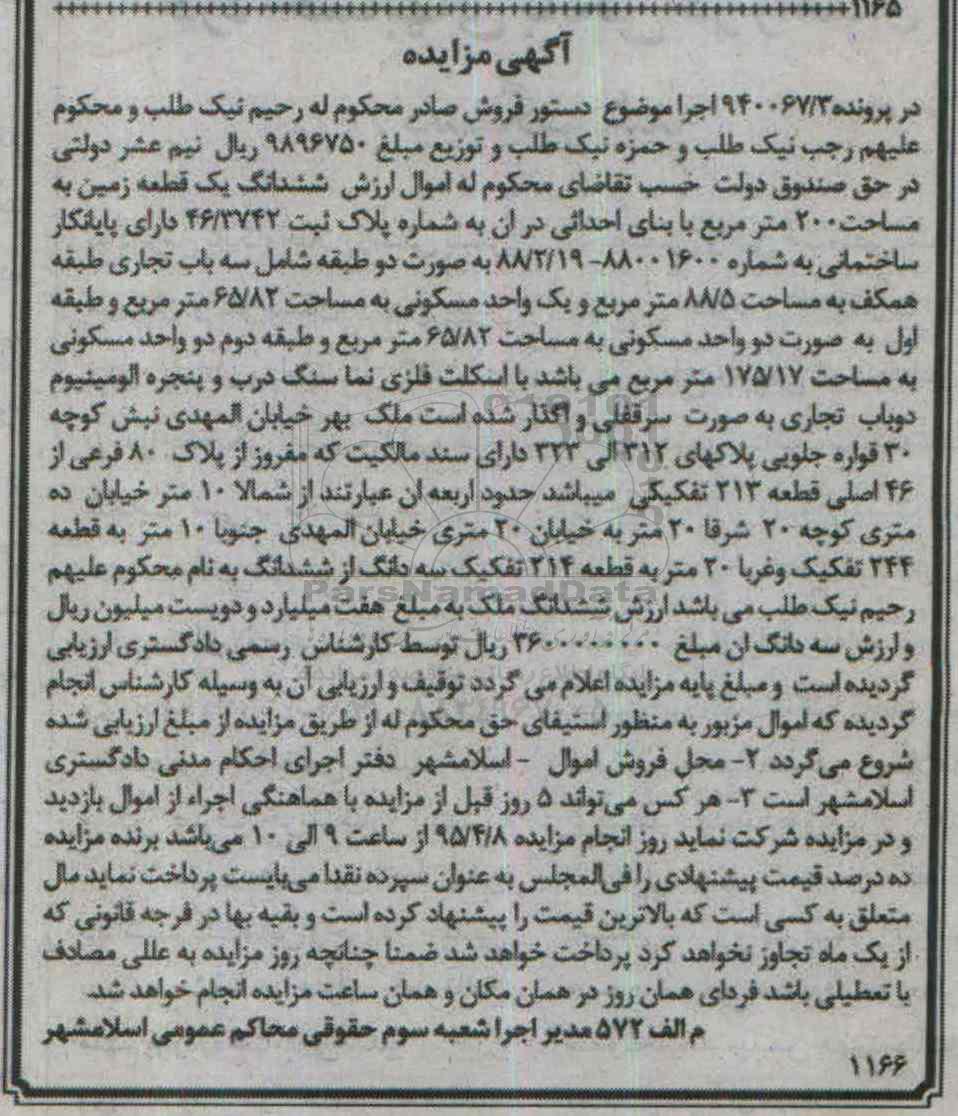 ۱۱۶۵
آگهی مزایده
در پرونده ۹۴۰۰۶۷/۳ اجرا موضوع دستور فروش صادر محکوم له رحیم نیک طلب و محکوم
علیهم رجب نیک طلب و حمزه نیک طلب و توزیع مبلغ ۹۸۹۶۷۵۰ ریال نیم عشر دولتی
در حق صندوق دولت حسب تقاضای محکوم له اموال ارزش ششدانگ یک قطعه زمین به
مساحت ۲۰۰ متر مربع با بنای احداثی در ان به شماره پلاک ثبت ۴۶/۳۷۴۲ دارای پایانکار
ساختمانی به شماره ۸۸۰۰۱۶۰۰- ۸۸/۲/۱۹ به صورت دو طبقه شامل سه باب تجاری طبقه
همکف به مساحت ۸۸/۵ متر مربع و یک واحد مسکونی به مساحت ۶۵/۸۲ متر مربع و طبقه
اول به صورت دو واحد مسکونی به مساحت ۶۵/۸۲ متر مربع و طبقه دوم دو واحد مسکونی
به مساحت ۱۷۵/۱۷ متر مربع می باشد با اسکلت فلزی نما سنگ درب و پنجره الومینیوم
دوباب تجاری به صورت سرقفلی و اگذار شده است ملک بهر خیابان المهدی نبش کوچه
۳۰ قواره جلویی پلاکهای ۳۱۲ الی ۳۲۳ دارای سند مالکیت که مفروز از پلاک ۸۰ فرعی از
۴۶ اصلی قطعه ۲۱۳ تفکیکی میباشد حدود اربعه ان عبارتند از شمالا ۱۰ متر خیابان ده
متری کوچه ۲۰ شرقا ۲۰ متر به خیابان ۲۰ متری خیابان المهدی جنوبا ۱۰ متر به قطعه
۲۴۴ تفکیک وغربا ۲۰ متر به قطعه ۲۱۴ تفکیک سه دانگ از ششدانگ به نام محکوم علیهم
رحیم نیک طلب می باشد ارزش ششدانگ ملک به مبلغ هفت میلیارد و دویست میلیون ریال
و ارزش سه دانگ ان مبلغ ریال توسط کارشناس رسمی دادگستری ارزیابی
گردیده است و مبلغ پایه مزایده اعلام می گردد توقیف و ارزیابی آن به وسیله کارشناس انجام
گردیده که اموال مزبور به منظور استیفای حق محکوم له از طریق مزایده از مبلغ ارزیابی شده
شروع می‌گردد ۲- محل فروش اموال - اسلامشهر دفتر اجرای احکام مدنی دادگستری
اسلامشهر است ۳- هر کس می‌تواند ۵ روز قبل از مزایده با هماهنگی اجراء از اموال بازدید
و در مزایده شرکت نماید روز انجام مزایده ۹۵/۴/۸ از ساعت ۹ الی ۱۰ می‌باشد برنده مزایده
ده درصد قیمت پیشنهادی را فی‌المجلس به عنوان سپرده نقدا می‌بایست پرداخت نماید مال
متعلق به کسی است که بالاترین قیمت را پیشنهاد کرده است و بقیه بها در فرجه قانونی که
از یک ماه تجاوز نخواهد کرد پرداخت خواهد شد ضمنا چنانچه روز مزایده به عللی مصادف
با تعطیلی باشد فردای همان روز در همان مکان و همان ساعت مزایده انجام خواهد شد.
م الف ۵۷۲ مدیر اجرا شعبه سوم حقوقی محاکم عمومی اسلامشهر
۱۱۶۶
ParsNamadData